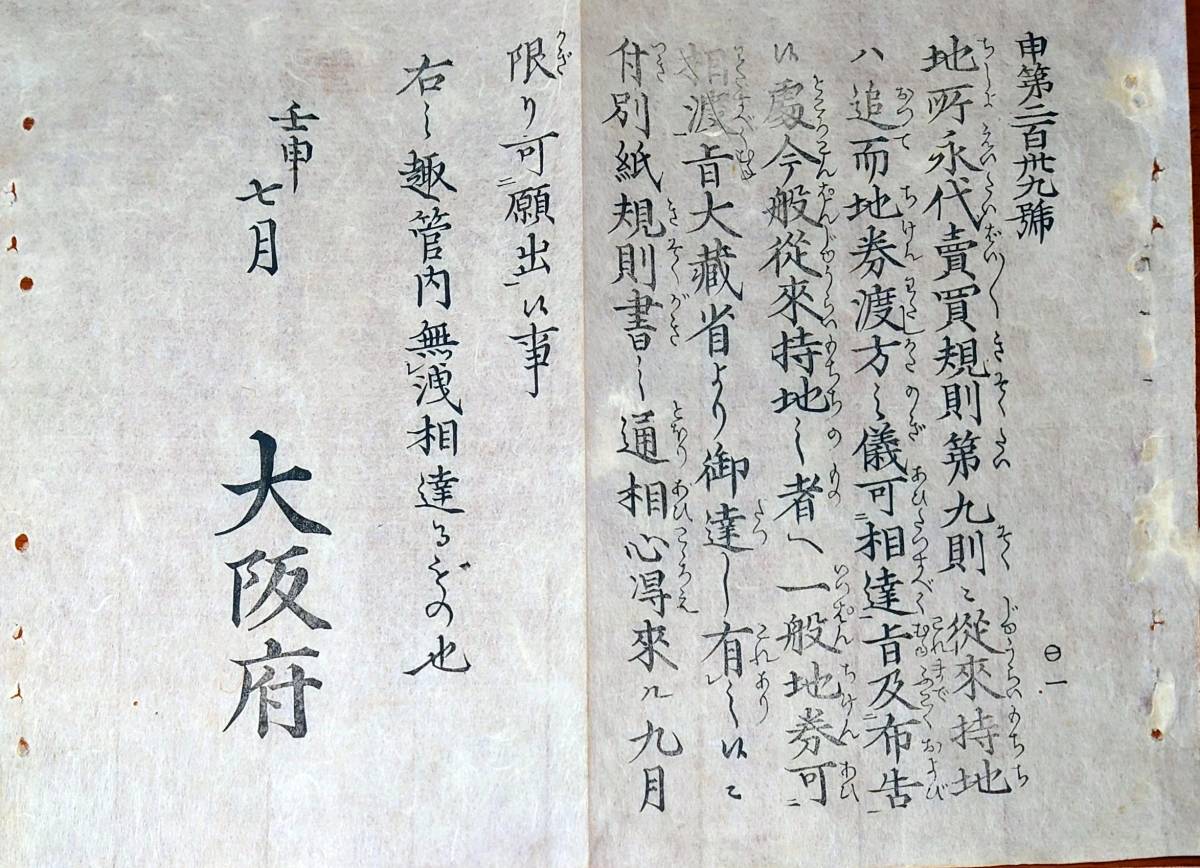 申第二百卅九號
地所永代賣買規則第九則ニ從來持地
ハ追而地券渡方之儀可相達旨及布告
候處今般從來持地之者へ一般地券可
相渡旨大藏省より御達し有之候ニ
付別紙規則書之通相心得來ル九月
限り可願出候事
右之趣管内無洩相達るもの也
壬申
七月
大阪府
㊀一